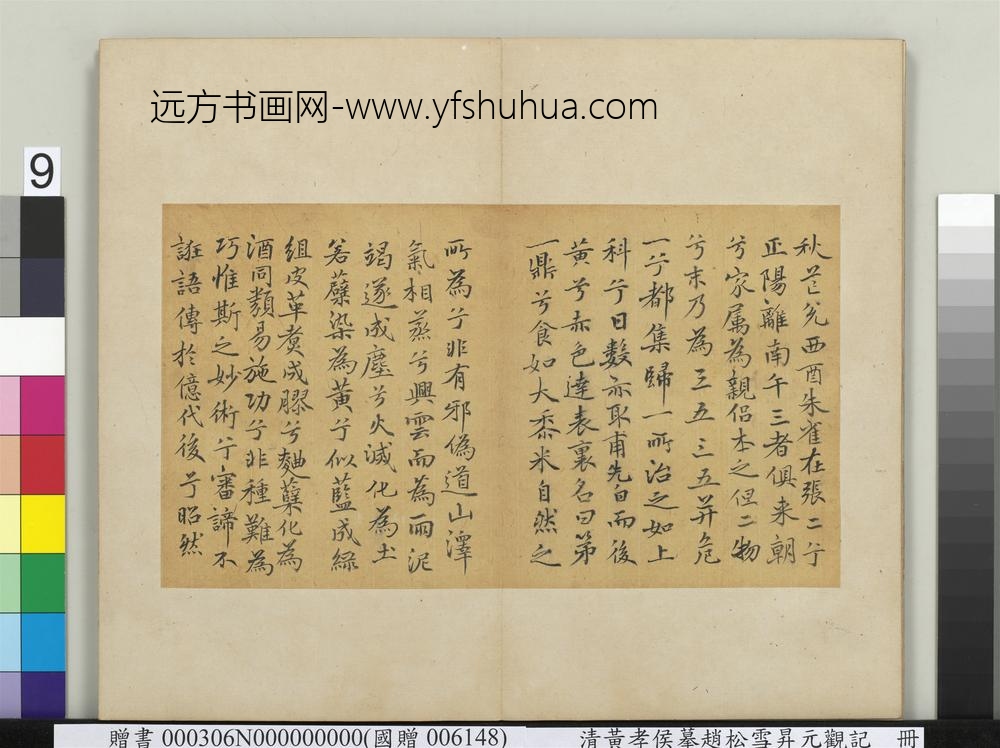 远方书画网-www.yfshuhua.com
9
秋芒兌西酉朱雀在張二兮
正陽離南午三者俱来朝
兮家属為親侣本之但二物
兮末乃為三五三五并危
一兮都集歸一所治之如上
科兮日數亦取甫先白而後
黄兮赤色達表裏名曰第
一鼎兮食如大黍米自然之
所為兮非有邪偽道山澤
氣相蒸兮興雲而為雨泥
竭遂成塵兮火滅化為土
若蘗染為黄兮似藍成緑
組皮革煑成膠兮麯蘖化為
酒同類易施功兮非種難為
巧惟斯之妙術兮審諦不
誑語傳於億代後兮昭然
贈書 000306N000000000(國贈 006148)
清黃孝侯摹趙松雪昇元觀記 冊